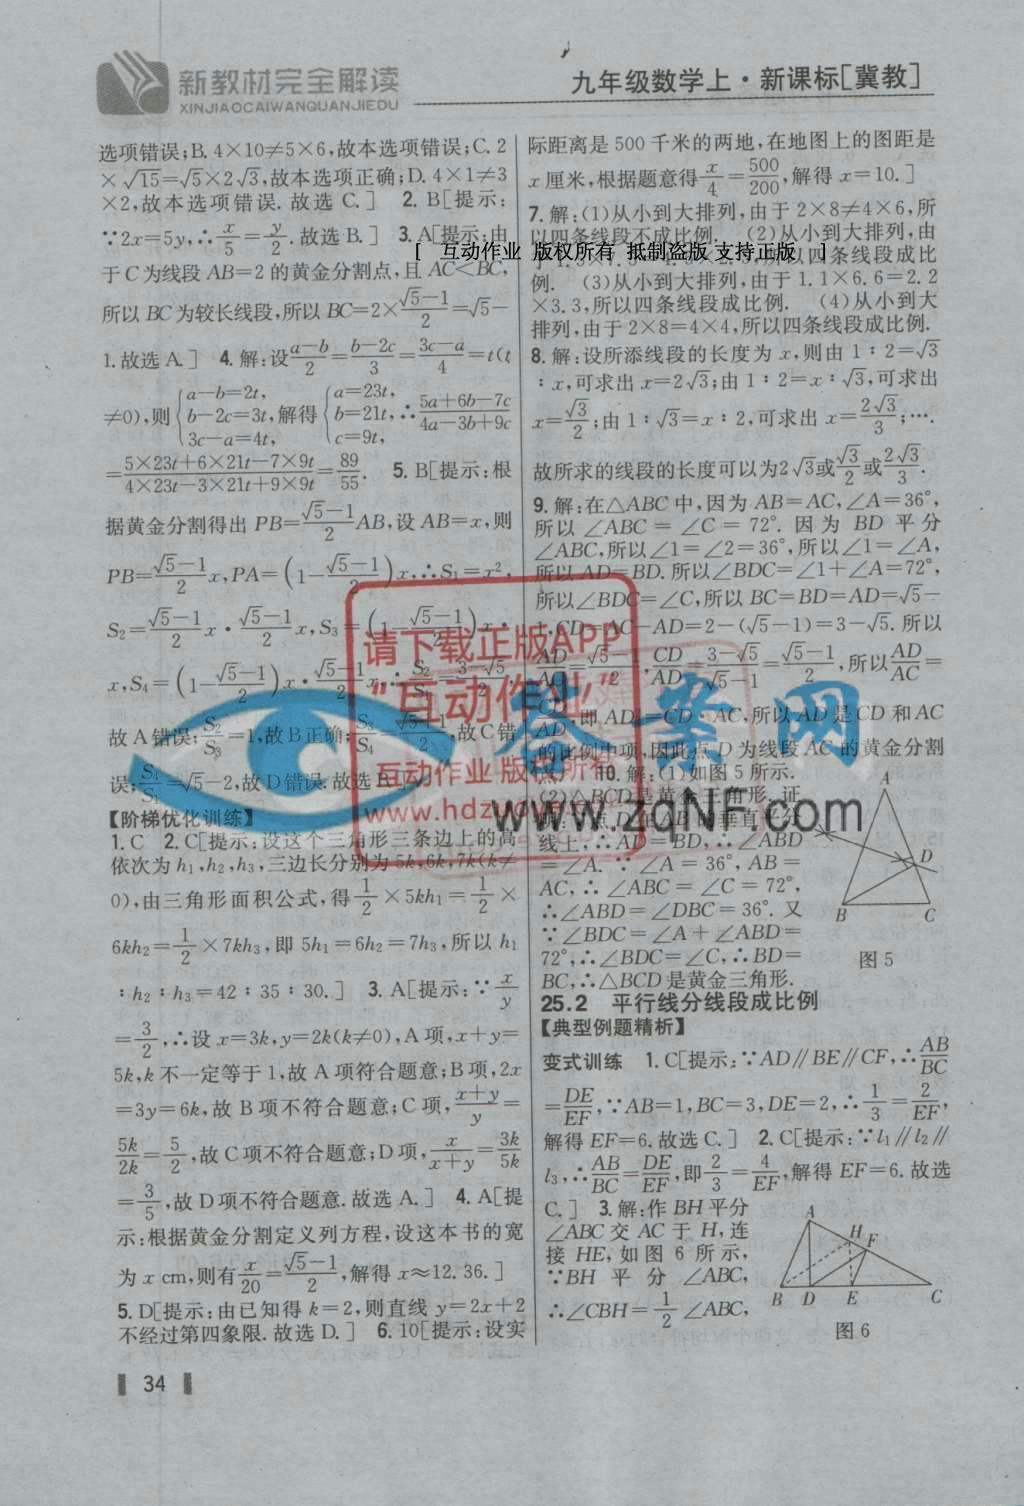 新教材完全解读
XINJIAOCAIWANQUANJIEDU
九年级数学上·新课标[冀教]
选项错误;B. 4×10≠5×6,故本选项错误;C. 2
×√15=√5×2√3,故本选项正确;D. 4×1≠3
×2,故本选项错误. 故选 C. ] 2. B[提示:
∵2x=5y,∴x/5=y/2. 故选 B. ] 3. A[提示:由
于 C 为线段 AB=2 的黄金分割点,且 AC<BC,
所以 BC 为较长线段,所以 BC=2×(√5-1)/2=√5-
1. 故选 A. ] 4. 解:设(a-b)/2=(b-2c)/3=(3c-a)/4=t(t
≠0),则{a-b=2t, b-2c=3t, 3c-a=4t, 解得{a=23t, b=21t, c=9t, ∴(5a+6b-7c)/(4a-3b+9c)
=(5×23t+6×21t-7×9t)/(4×23t-3×21t+9×9t)=89/55. 5. B[提示:根
据黄金分割得出 PB=(√5-1)/2 AB,设 AB=x,则
PB=(√5-1)/2 x,PA=(1-(√5-1)/2)x,∴S₁=x²,
S₂=(√5-1)/2 x·(√5-1)/2 x,S₃=(1-(√5-1)/2)x·
x,S₄=(1-(√5-1)/2)x·(√5-1)/2 x,∴S₂/S₁=(3-√5)/2,
故 A 错误;S₂/S₃=1,故 B 正确;S₃/S₄=(√5-1)/2,故 C 错
误;S₄/S₁=√5-2,故 D 错误. 故选 B. ]
【阶梯优化训练】
1. C 2. C[提示:设这个三角形三条边上的高
依次为 h₁,h₂,h₃,三边长分别为 5k,6k,7k(k≠
0),由三角形面积公式,得 1/2×5kh₁=1/2×
6kh₂=1/2×7kh₃,即 5h₁=6h₂=7h₃,所以 h₁
∶h₂∶h₃=42∶35∶30. ] 3. A[提示:∵x/y
=3/2,∴设 x=3k,y=2k(k≠0),A 项,x+y=
5k,k 不一定等于 1,故 A 项符合题意;B 项,2x
=3y=6k,故 B 项不符合题意;C 项,(x+y)/y=
5k/2k=5/2,故 C 项不符合题意;D 项,x/(x+y)=3k/5k
=3/5,故 D 项不符合题意. 故选 A. ] 4. A[提
示:根据黄金分割定义列方程,设这本书的宽
为 x cm,则有 x/20=(√5-1)/2,解得 x≈12.36. ]
5. D[提示:由已知得 k=2,则直线 y=2x+2
不经过第四象限. 故选 D. ] 6. 10[提示:设实
际距离是 500 千米的两地,在地图上的图距是
x 厘米,根据题意得 x/4=500/200,解得 x=10. ]
7. 解:(1)从小到大排列,由于 2×8≠4×6,所
以四条线段不成比例. (2)从小到大排列,由
所以四条线段成比
例. (3)从小到大排列,由于 1.1×6.6=2.2
×3.3,所以四条线段成比例. (4)从小到大
排列,由于 2×8=4×4,所以四条线段成比例.
8. 解:设所添线段的长度为 x,则由 1∶2=√3
∶x,可求出 x=2√3;由 1∶2=x∶√3,可求出
x=√3/2;由 1∶√3=x∶2,可求出 x=2√3/3;….
故所求的线段的长度可以为2√3或√3/2或2√3/3.
9. 解:在△ABC 中,因为 AB=AC,∠A=36°,
所以 ∠ABC = ∠C = 72°. 因为 BD 平分
∠ABC,所以∠1=∠2=36°,所以∠1=∠A,
所以 AD=BD. 所以∠BDC=∠1+∠A=72°,
所以∠BDC=∠C,所以 BC=BD=AD=√5-
1,CD=AC-AD=2-(√5-1)=3-√5. 所以
AD/AC=(√5-1)/2,CD/AD=(3-√5)/(√5-1)=(√5-1)/2,所以AD/AC=
CD/AD,即 AD²=CD·AC,所以 AD 是 CD 和 AC
的比例中项,因此点 D 为线段 AC 的黄金分割
点. 10. 解:(1)如图 5 所示.
(2)△BCD 是黄金三角形. 证
明:∵点 D 在 AB 的垂直平分
线上,∴AD=BD,∴∠ABD
=∠A. ∵∠A=36°,AB=
AC,∴∠ABC=∠C=72°,
∴∠ABD=∠DBC=36°. 又
∵∠BDC=∠A+∠ABD=
72°,∴∠BDC=∠C,∴BD=
BC,∴△BCD 是黄金三角形.
A
D
B
C
图 5
25.2 平行线分线段成比例
【典型例题精析】
变式训练 1. C[提示:∵AD∥BE∥CF,∴AB/BC
=DE/EF,∵AB=1,BC=3,DE=2,∴1/3=2/EF,
解得 EF=6. 故选 C. ] 2. C[提示:∵l₁∥l₂∥
l₃,∴AB/BC=DE/EF,即2/3=4/EF,解得 EF=6. 故选
C. ] 3. 解:作 BH 平分
∠ABC 交 AC 于 H,连
接 HE,如图 6 所示,
∵BH 平分 ∠ABC,
∴∠CBH=1/2∠ABC,
A
H
F
B
D
E
C
图 6
34
[ 互动作业 版权所有 抵制盗版 支持正版 ]
请下载正版APP
"互动作业"
互动作业 版权所有
答案网
www.zqNF.com